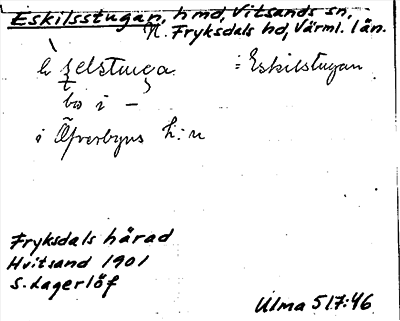 Eskilsstugan, hmd, Vitsands sn,
N. Fryksdals hd, Värml. län.
: Eskilstugan
bo i –
i Öfverbyns h:n
Fryksdals härad
Hvitsand 1901
S. Lagerlöf
Ulma 517:46